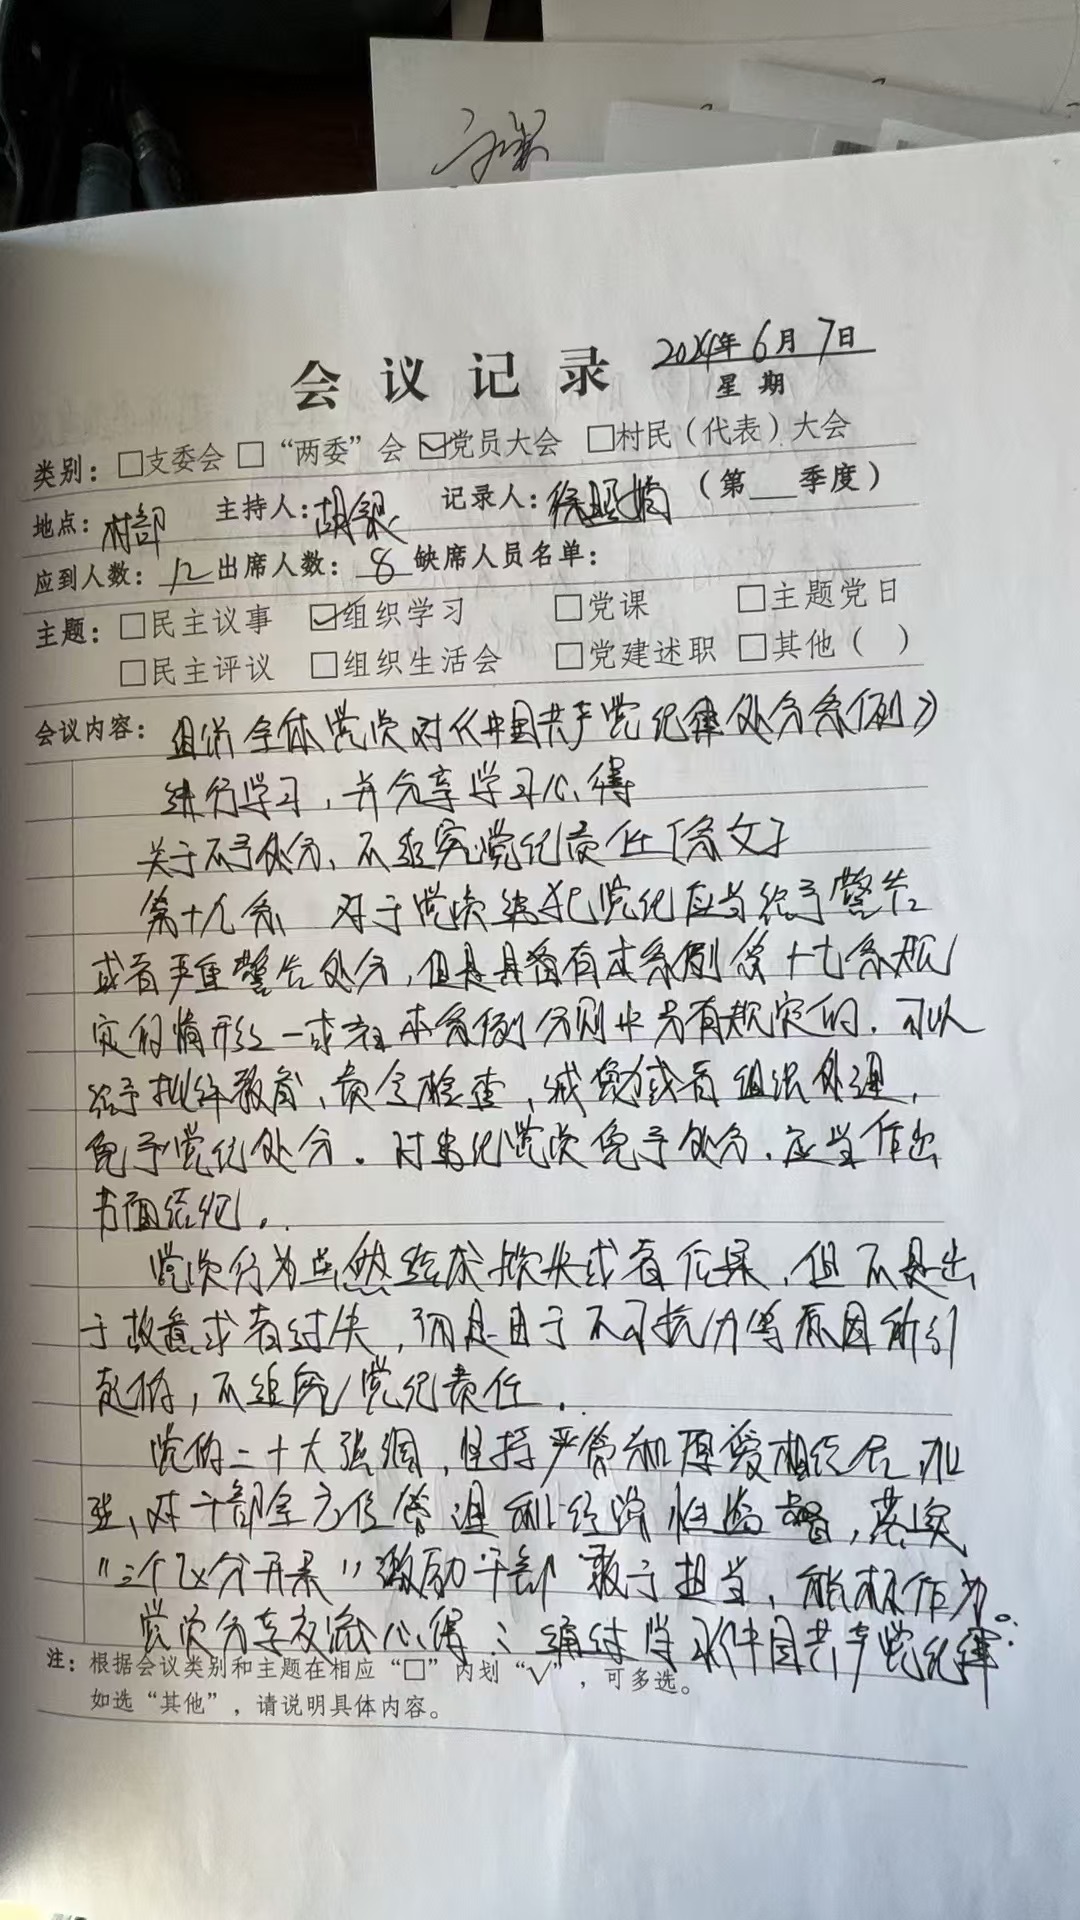 会议记录 2024年6月7日
星期
类别：□支委会 □“两委”会 ☑党员大会 □村民（代表）大会
地点：村部 主持人：胡银 记录人：徐 （第 季度）
应到人数：12 出席人数：8 缺席人员名单：
主题：□民主议事 ☑组织学习 □党课 □主题党日
□民主评议 □组织生活会 □党建述职 □其他（ ）
会议内容：组织全体党员对《中国共产党纪律处分条例》
进行学习，并分享学习心得
关于不予处分、不追究党纪责任［条文］
第十九条 对于党员违犯党纪应当给予警告
或者严重警告处分，但是具备有本条例第十七条规
定的情形之一或者本条例分则中另有规定的，可以
给予批评教育、责令检查、诫勉或者组织处理，
免予党纪处分。对违纪党员免予处分，应当作出
书面结论。
党员行为虽然造成损失或者后果，但不是出
于故意或者过失，而是由于不可抗力等原因所引
起的，不追究党纪责任。
党的二十大强调，坚持严管和厚爱相结合，加
强对干部全方位管理和经常性监督，落实
“三个区分开来”激励干部敢于担当，积极作为。
党员分享交流心得：通过学习《中国共产党纪律
注：根据会议类别和主题在相应“□”内划“√”，可多选。
如选“其他”，请说明具体内容。